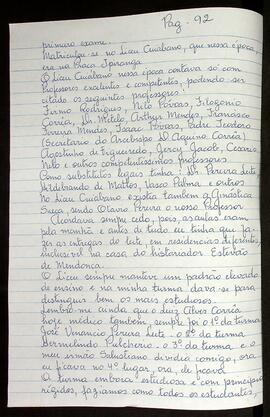 Pag - 92
primeiro exame.
Matriculei-me no Liceu Cuiabano, que nessa época,
era na Praça Ipiranga.
O Liceu Cuiabano nessa época contava só com
Professores excelentes e competentes, podendo ser
citado os seguintes professores:
Firmo Rodrigues, Nilo Póvoas, Filogonio
Corrêa, Dr. Mitelo, Arthur Mendes, Francisco
Ferreira Mendes, Isaac Póvoas, Padre Teodoro
(Secretario do Arcebispo D. Aquino Corrêa)
Agostinho de Figueiredo, Jercy Jacob, Cesario
Neto e outros competentissimos professores
Como substitutos legais tinha: Dr. Pereira Leite
Hildebrando de Mattos, Vasco Palma e outros
No Liceu Cuiabano existia tambem a Ginástica
Sueca, sendo Otavio Pereira o nosso Professor.
Acordava sempre cedo, pois, as aulas eram
pela manhã e antes de tudo eu tinha que fa-
zer as entregas do leite em residencias diferentes,
inclusivel na casa do historiador Estevão
de Mendonça.
O Liceu sempre manteve um padrão elevado
de ensino e na minha turma dava-se para
distinguir bem os mais estudiosos.
Lembro-me ainda que o Luiz Alves Corrêa
hoje médico também, sempre foi o 1º da turma
José Venancio Pereira Leite - o 2º da turma,
Hermelindo Pulcherio - o 3º da turma e o
meu irmão Salustiano dividia comigo, ora
eu ficava no 4º lugar, ora, ele ficava
A turma embora estudiosa e com principios
rigidos, faziamos como todos os estudantes,